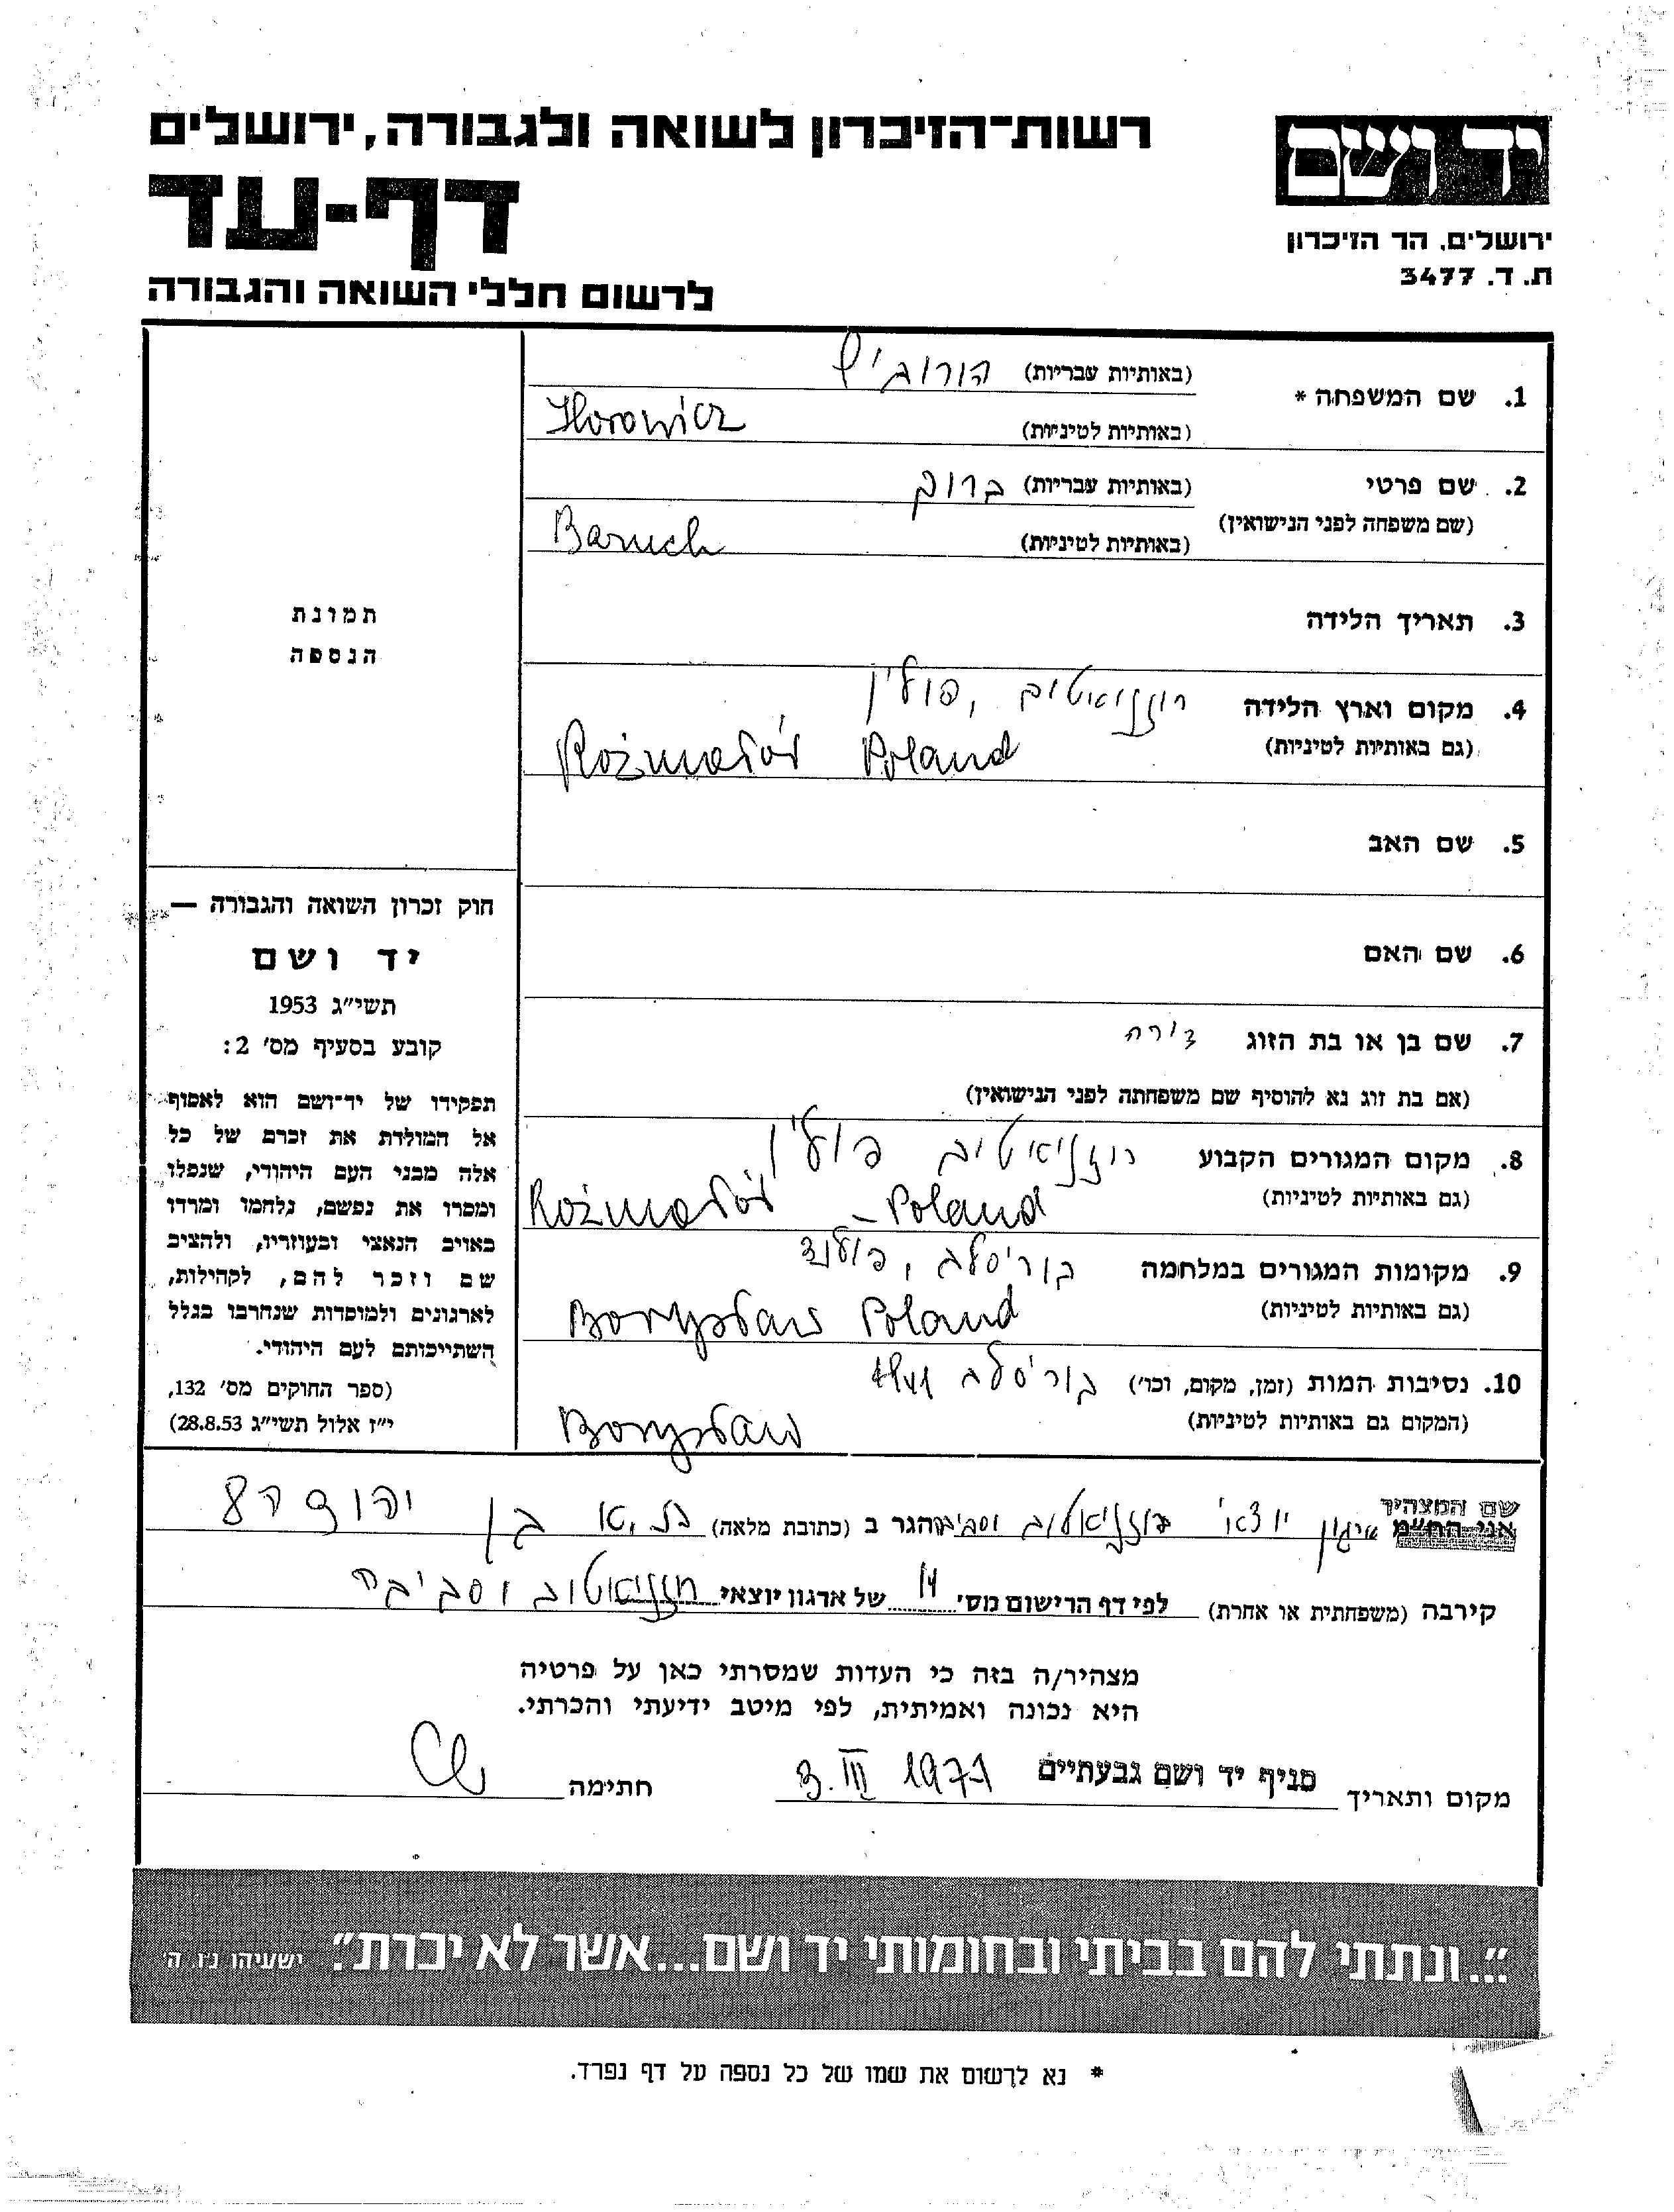 רשות־הזיכרון לשואה ולגבורה, ירושלים
דף-עד
לרשום חללי השואה והגבורה
יד ושם
ירושלים, הר הזיכרון
ת. ד. 3477
1. שם המשפחה *
(באותיות עבריות) הורוביץ
(באותיות לטיניות) Horowicz
2. שם פרטי
(שם משפחה לפני הנישואין)
(באותיות עבריות) ברוך
(באותיות לטיניות) Baruch
3. תאריך הלידה
4. מקום וארץ הלידה רוזניאטוב, פולין
(גם באותיות לטיניות) Rożniatów Poland
5. שם האב
6. שם האם
7. שם בן או בת הזוג
(אם בת זוג נא להוסיף שם משפחתה לפני הנישואין)
8. מקום המגורים הקבוע רוזניאטוב פולין
(גם באותיות לטיניות) Rożniatów - Poland
9. מקומות המגורים במלחמה בוריסלב, פולין
(גם באותיות לטיניות) Borysław Poland
10. נסיבות המות (זמן, מקום, וכו') בוריסלב
(המקום גם באותיות לטיניות) Borysław
תמונת
הנספה
חוק זכרון השואה והגבורה —
יד ושם
תשי״ג 1953
קובע בסעיף מס׳ 2:
תפקידו של יד־ושם הוא לאסוף
אל המולדת את זכרם של כל
אלה מבני העם היהודי, שנפלו
ומסרו את נפשם, נלחמו ומרדו
באויב הנאצי ובעוזריו, ולהציב
שם וזכר להם, לקהילות,
לארגונים ולמוסדות שנחרבו בגלל
השתייכותם לעם היהודי.
(ספר החוקים מס׳ 132,
י״ז אלול תשי״ג 28.8.53)
שם המצהיר
אני הח״מ ארגון יוצאי רוזניאטוב וסביבה הגר ב (כתובת מלאה) ת.א בן יהודה 8
קירבה (משפחתית או אחרת) לפי דף הרישום מס׳ 14 של ארגון יוצאי רוזניאטוב וסביבה
מצהיר/ה בזה כי העדות שמסרתי כאן על פרטיה
היא נכונה ואמיתית, לפי מיטב ידיעתי והכרתי.
מקום ותאריך סניף יד ושם גבעתיים 3. III 1971 חתימה
״...ונתתי להם בביתי ובחומותי יד ושם...אשר לא יכרת״. ישעיהו נ״ו, ה׳
* נא לרשום את שמו של כל נספה על דף נפרד.